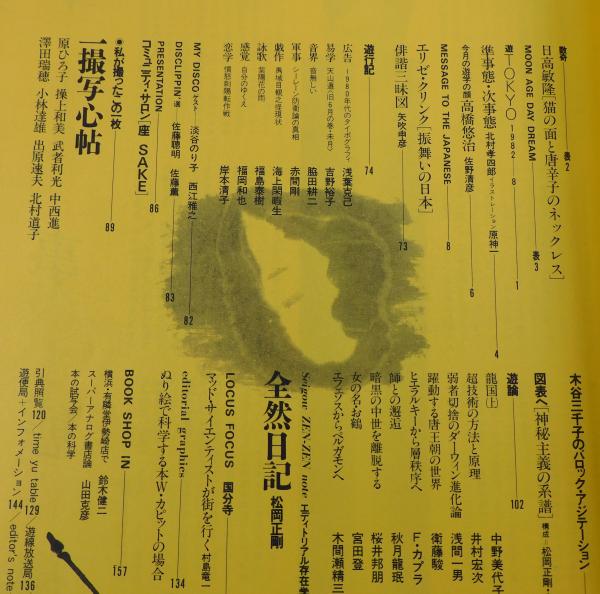 数寄
日高敏隆[猫の面と唐辛子のネックレス]
表2
MOON AGE DAY DREAM
表3
遊TOKYO 1982・8
1
準事態・次事態 北村孝四郎 イラストレーション 原神一
4
今月の遊学の顔 高橋悠治 佐野清彦
6
MESSAGE TO THE JAPANESE
エリゼ・クリンク[振舞いの日本]
8
俳諧三昧図 矢吹申彦
73
遊行記
74
広告 1980年代のタイポグラフィ 浅葉克己
易学 天山遯䷠(旧6月の巻・未月) 吉野裕子
音界 音無しい 脇田耕二
軍事 シーレーン防衛論の真相 赤間剛
戯作 馬城目観之怪現状 海上閑暇生
詠歌 紫陽花の雨 福島泰樹
感覚 自分のゆくえ 福岡和也
恋学 憤怒剣陽転作戦 岸本清子
MY DISCO ゲスト 淡谷のり子 西江雅之
82
DISCLIPPIN'選 佐藤聰明 佐藤薫
83
PRESENTATION
コッジティ・サロン[座 SAKE]
86
●私が撮ったこの一枚
一撮写心帖
89
原ひろ子 操上和美 武者利光 中西進
澤田瑞穂 小林達雄 出原速夫 北村道子
木谷三千子のバロック・アジテーション
図表[神秘主義の系譜] 構成=松岡正剛・
遊論
102
龍国[上] 中野美代子
超技術の方法と原理 井村宏次
弱者切捨のダーウィン進化論 浅間一男
躍動する唐王朝の世界 衛藤駿
ヒエラルキーから層秩序へ F・カプラ
師との邂逅 秋月龍珉
暗黒の中世を離脱する 桜井邦朋
女の名お鶴 宮田登
エフェソスからペルガモンへ 木間瀬精三
Seigow ZEN-ZEN note エディトリアル存在学
全然日記 松岡正剛
LOCUS FOCUS 国分寺
マッドサイエンティストが街を行く 村島竜一
editorial graphics
ぬり絵で科学する本W・カピットの場合
134
BOOK SHOP IN
157
横浜・有隣堂伊勢崎店で 鈴木健二
スーパーアナログ書店論
本の試写会/本の科学 山田克彦
引典照覧120/time yu table129/遊線放送局136
遊便局+インフォメーション144/editor's note